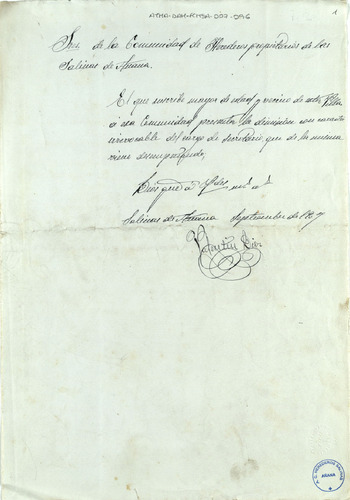 ATHA-DAH-FHSA-007-096
1
Sres de la Comunidad de Herederos propietarios de las
Salinas de Añana.
El que suscribe mayor de edad y vecino de esta Villa
á esa Comunidad presenta la dimisión con caracter
irrevocable del cargo de secretario que de la misma
viene desempeñando,
Dios gue á Vdes
Salinas de Añana Septiembre de
Martin
AÑANA